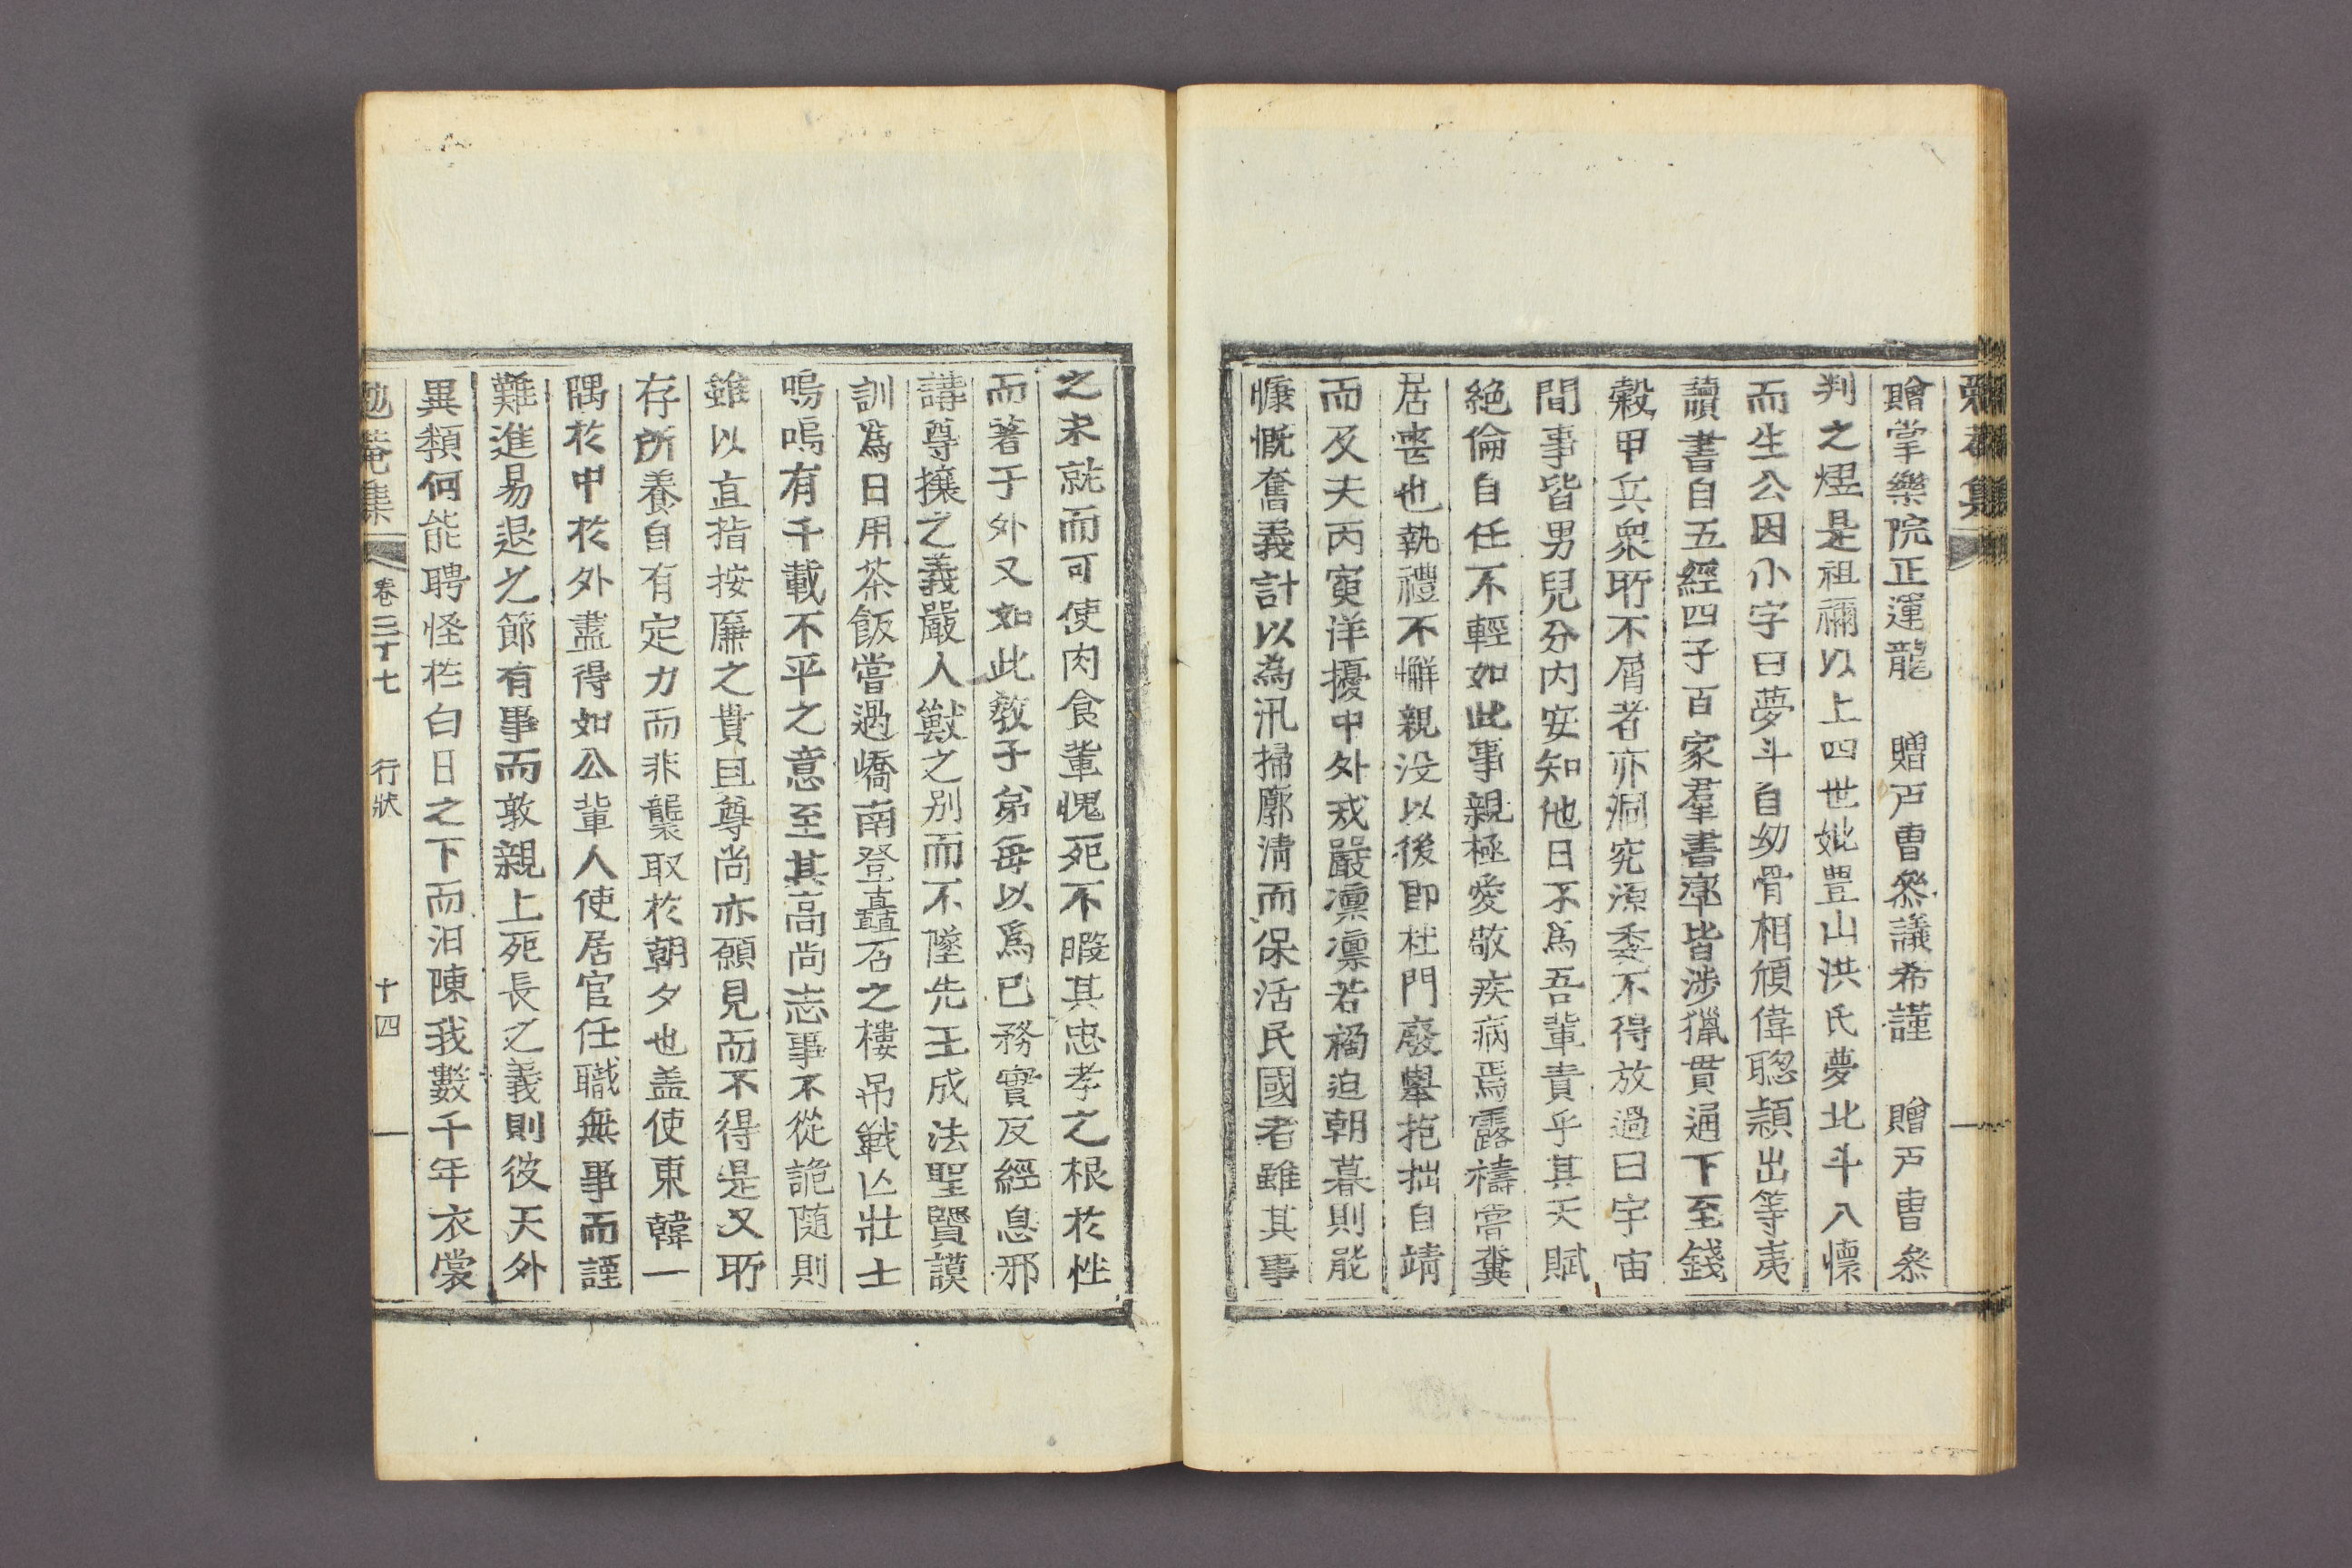 勉菴集
贈掌樂院正運龍 贈戶曹叅議希謹 贈戶曹叅
判之熤是祖禰以上四世妣豊山洪氏夢北斗入懷
而生公因小字曰夢斗自幼骨相頎偉聦穎出等夷
讀書自五經四子百家羣書率皆涉獵貫通下至錢
穀甲兵衆所不屑者亦洞究源委不得放過曰宇宙
間事皆男兒分內安知他日不爲吾輩責乎其天賦
絶倫自任不輕如此事親極愛敬疾病焉露禱嘗糞
居喪也執禮不懈親没以後卽杜門廢擧抱拙自靖
而及夫丙寅洋擾中外戒嚴凛凛若禍迫朝暮則能
慷慨奮義計以為汛掃廓淸而保活民國者雖其事
之未就而可使肉食輩愧死不暇其忠孝之根於性
而著于外又如此敎子弟每以爲已務實反經息邪
講尊攘之義嚴人獸之别而不墜先王成法聖賢謨
訓爲日用茶飯嘗過嶠南登矗石之樓吊戰亡壯士
嗚嗚有千載不平之意至其高尚志事不從詭隨則
雖以直指按廉之貴且尊尚亦願見而不得是又所
存所養自有定力而非襲取於朝夕也盖使東韓一
隅於中於外盡得如公輩人使居官任職無事而謹
難進易退之節有事而敦親上死長之義則彼天外
異類何能聘怪於白日之下而汩陳我數千年衣裳
勉菴集 卷二十七 行狀 十四